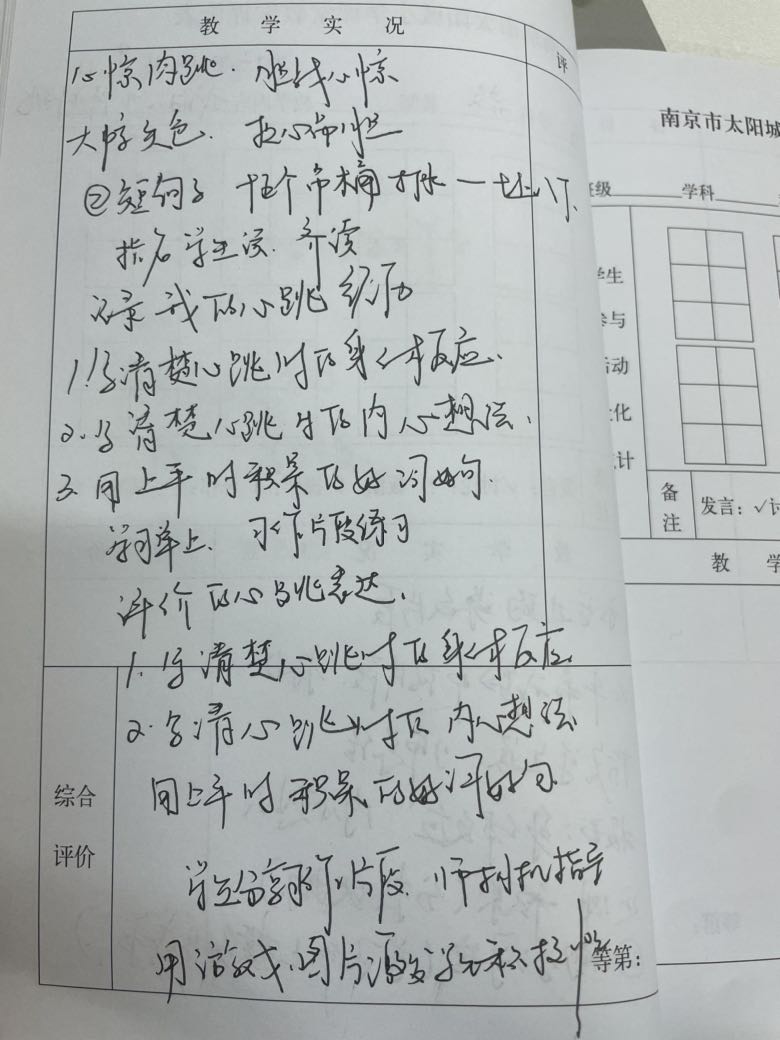 教 学 实 况
评
心惊肉跳. 胆战心惊
大惊失色. 提心吊胆
②短句子 十五个吊桶打水—七上八下.
指名学生读. 齐读
记录我的心跳经历
1.写清楚心跳时的身体反应.
2.写清楚心跳时的内心想法.
3.用上平时积累的好词好句.
学习单上. 习作片段练习
评价的心跳表达.
1.写清楚心跳时的身体反应.
2.写清心跳时的内心想法
用上平时积累的好词好句.
综合
评价
学生分享习作片段. 师相机指导
用游戏.图片激发学生
等第:
南京市太阳城
班级 学科
学生
参与
活动
量化
统计
备
注
发言:√讨
教 学